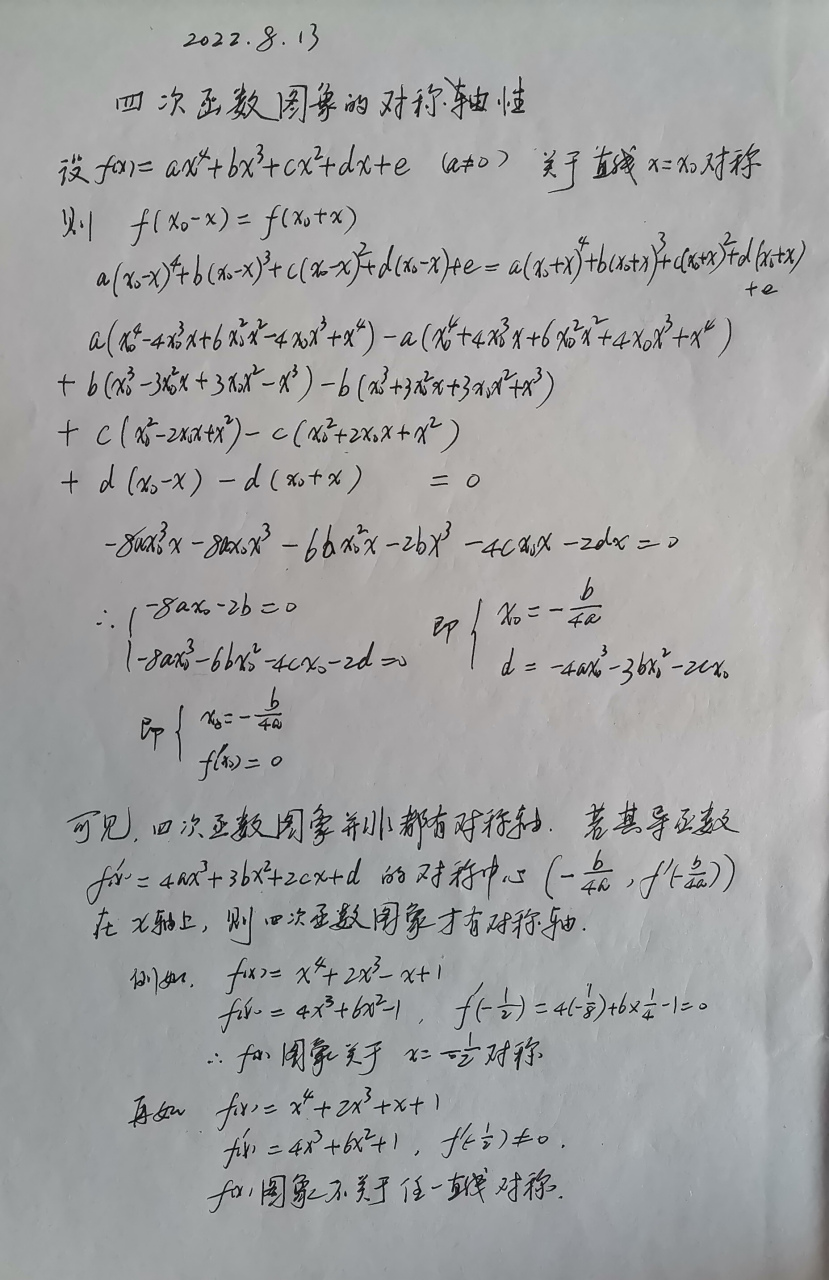 2022.8.13
四次函数图象的对称轴性
设 f(x)=ax⁴+bx³+cx²+dx+e (a≠0) 关于直线 x=x₀对称
则 f(x₀-x)=f(x₀+x)
a(x₀-x)⁴+b(x₀-x)³+c(x₀-x)²+d(x₀-x)+e=a(x₀+x)⁴+b(x₀+x)³+c(x₀+x)²+d(x₀+x)
+e
a(x₀⁴-4x₀³x+6x₀²x²-4x₀x³+x⁴)-a(x₀⁴+4x₀³x+6x₀²x²+4x₀x³+x⁴)
+ b(x₀³-3x₀²x+3x₀x²-x³)-b(x₀³+3x₀²x+3x₀x²+x³)
+ c(x₀²-2x₀x+x²)-c(x₀²+2x₀x+x²)
+ d(x₀-x)-d(x₀+x) =0
-8ax₀³x-8ax₀x³-6bx₀²x-2bx³-4cx₀x-2dx=0
∴ { -8ax₀-2b=0 即 { x₀=-b/4a
-8ax₀³-6bx₀²-4cx₀-2d=0 d=-4ax₀³-3bx₀²-2cx₀
即 { x₀=-b/4a
f'(x₀)=0
可见, 四次函数图象并非都有对称轴. 若其导函数
f'(x)=4ax³+3bx²+2cx+d 的对称中心 (-b/4a, f'(-b/4a))
在 x轴上, 则四次函数图象才有对称轴.
例如, f(x)=x⁴+2x³-x+1
f'(x)=4x³+6x²-1, f'(-1/2)=4(-1/8)+6×1/4-1=0
∴ f(x)图象关于 x=-1/2 对称
再如 f(x)=x⁴+2x³+x+1
f'(x)=4x³+6x²+1, f'(-1/2)≠0.
f(x)图象不关于任一直线对称.